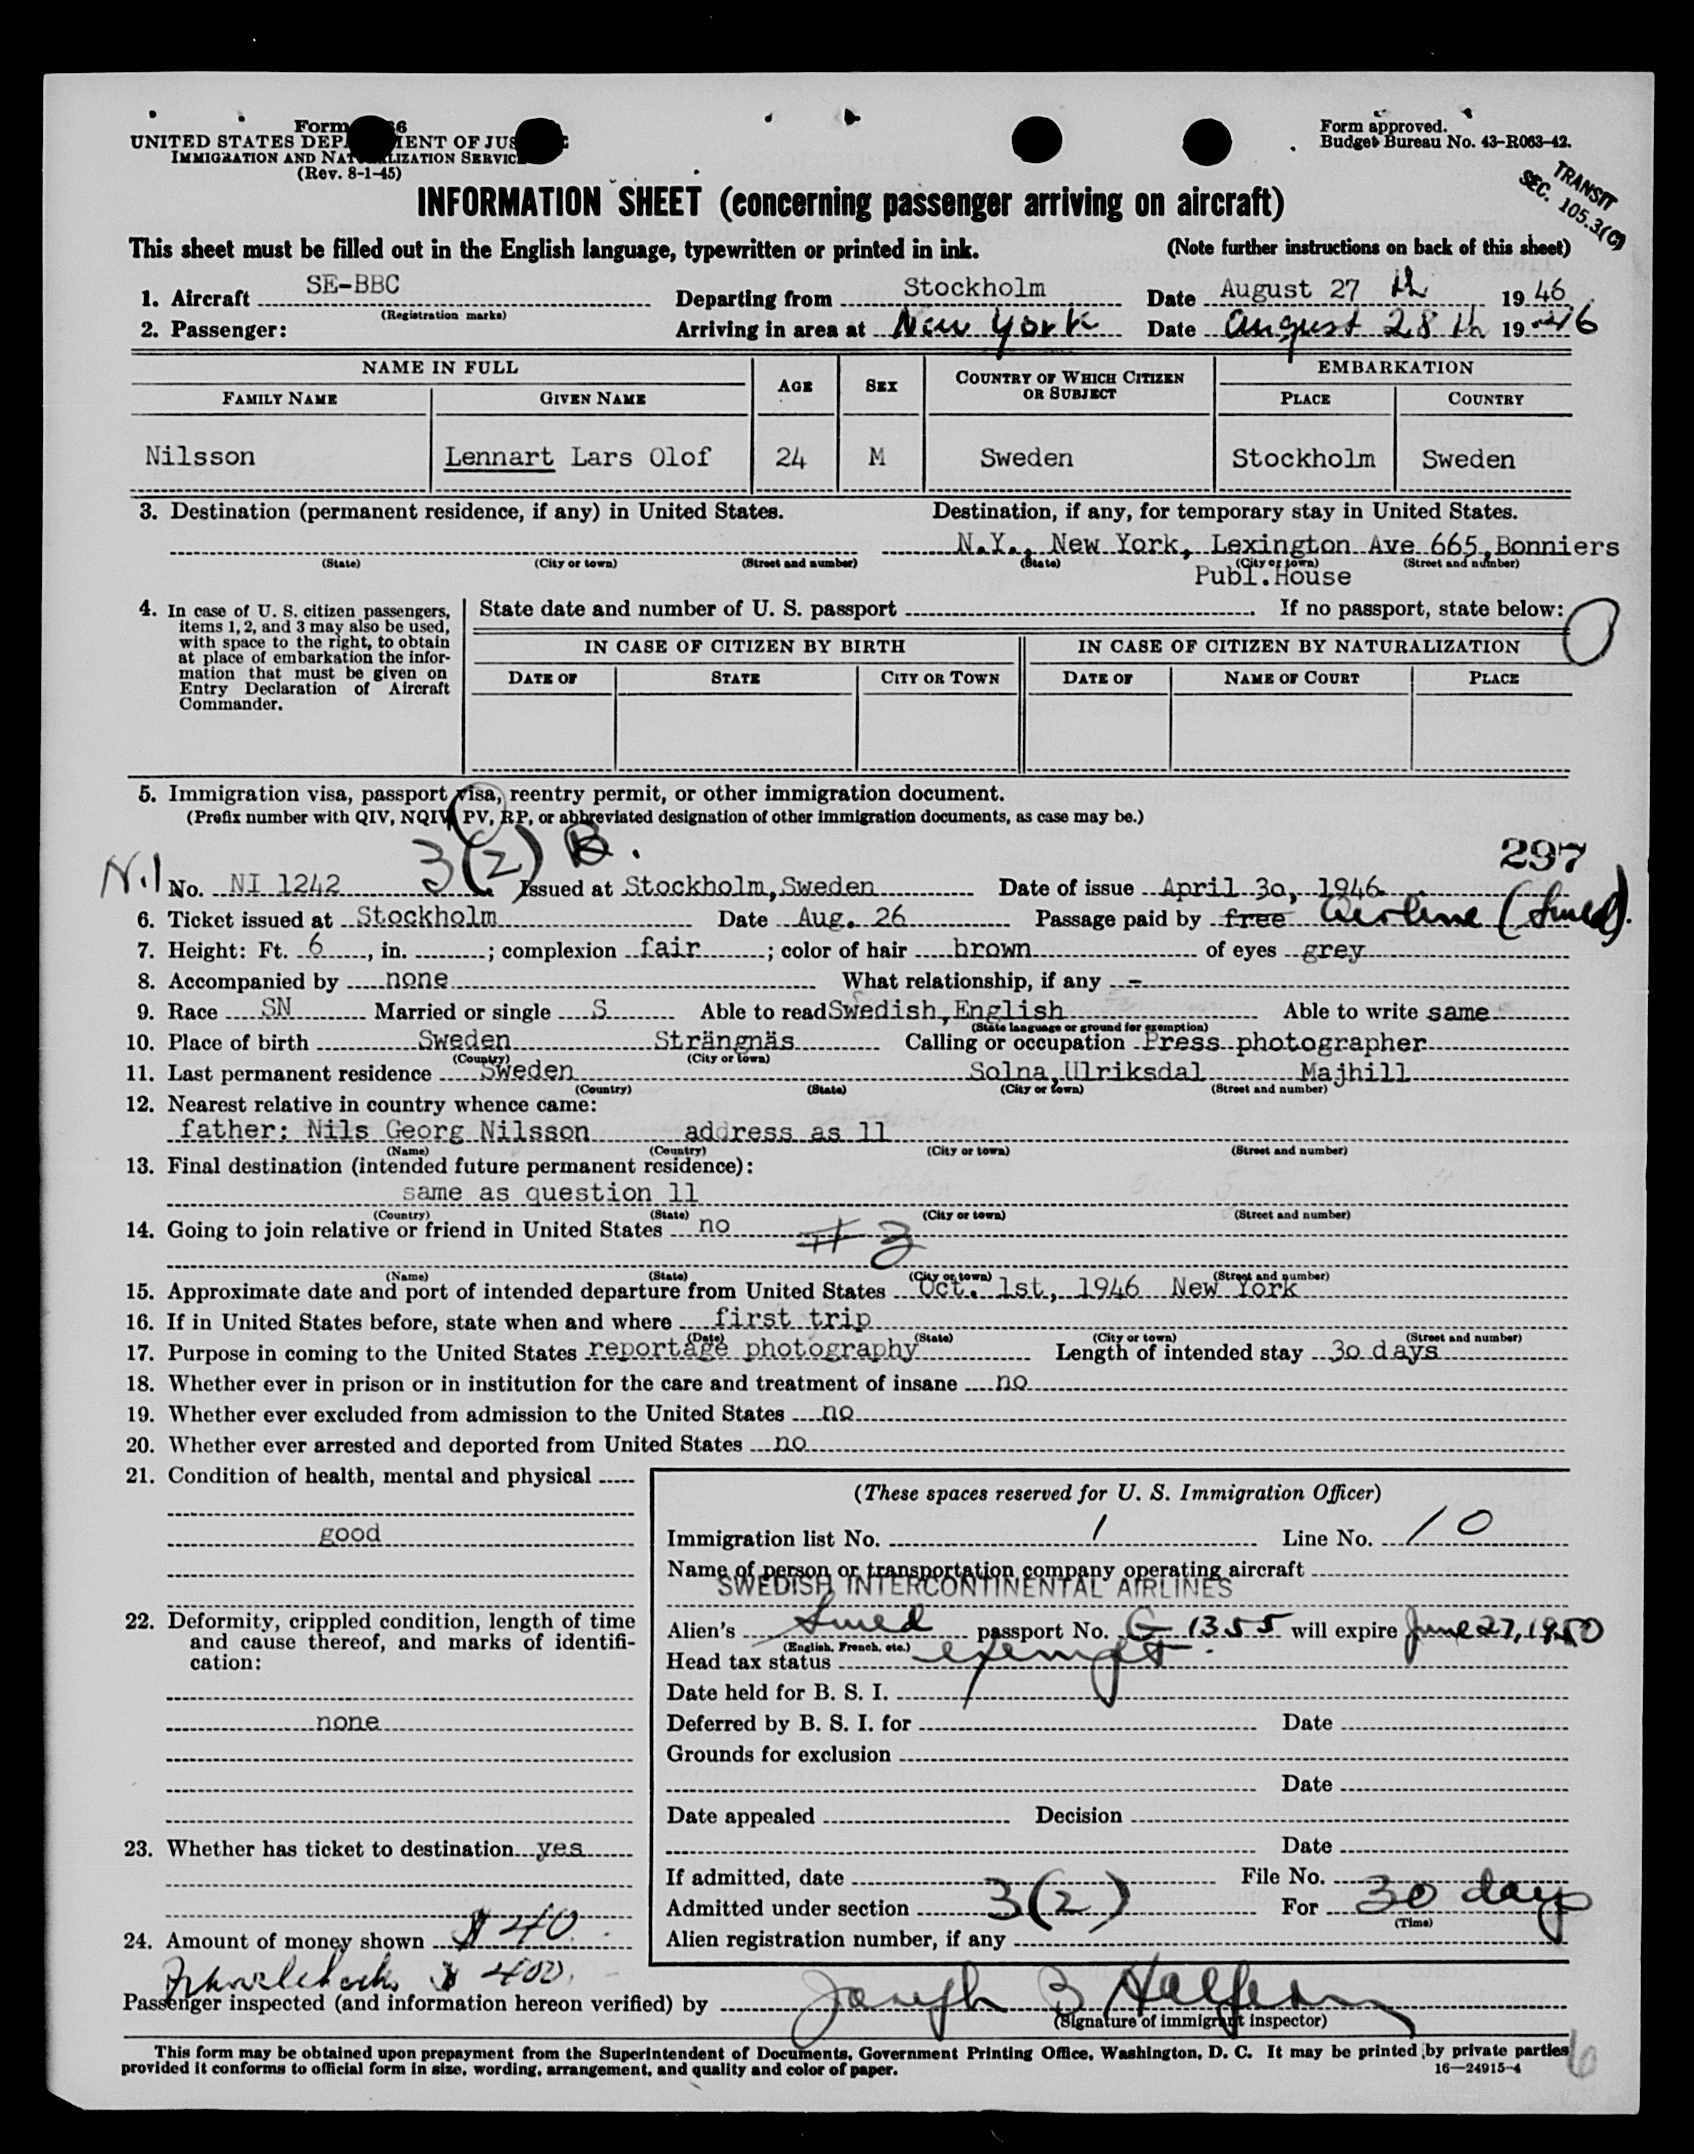 Form 6
UNITED STATES DEP ENT OF JUS
IMMIGRATION AND NAT LIZATION SERVIC
(Rev. 8-1-45)
Form approved.
Budget Bureau No. 43-R063-42.
TRANSIT
SEC. 105.3(C)
INFORMATION SHEET (concerning passenger arriving on aircraft)
This sheet must be filled out in the English language, typewritten or printed in ink. (Note further instructions on back of this sheet)
1. Aircraft SE-BBC Departing from Stockholm Date August 27 th 1946
(Registration marks)
2. Passenger: Arriving in area at New York Date August 28 th 1946
NAME IN FULL AGE SEX COUNTRY OF WHICH CITIZEN OR SUBJECT EMBARKATION
FAMILY NAME GIVEN NAME PLACE COUNTRY
Nilsson Lennart Lars Olof 24 M Sweden Stockholm Sweden
3. Destination (permanent residence, if any) in United States. Destination, if any, for temporary stay in United States.
N.Y., New York, Lexington Ave 665, Bonniers
(State) (City or town) (Street and number) (State) (City or town) (Street and number)
Publ.House
4. In case of U. S. citizen passengers, items 1, 2, and 3 may also be used, with space to the right, to obtain at place of embarkation the information that must be given on Entry Declaration of Aircraft Commander.
State date and number of U. S. passport If no passport, state below:
IN CASE OF CITIZEN BY BIRTH IN CASE OF CITIZEN BY NATURALIZATION
DATE OF STATE CITY OR TOWN DATE OF NAME OF COURT PLACE
5. Immigration visa, passport visa, reentry permit, or other immigration document.
(Prefix number with QIV, NQIV, PV, RP, or abbreviated designation of other immigration documents, as case may be.)
3(2) B. 297
No. NI 1242 Issued at Stockholm, Sweden Date of issue April 30, 1946
6. Ticket issued at Stockholm Date Aug. 26 Passage paid by free Airline (Swed).
7. Height: Ft. 6, in. ; complexion fair; color of hair brown of eyes grey
8. Accompanied by none What relationship, if any -
9. Race SN Married or single S Able to read Swedish, English Able to write same
(State language or ground for exemption)
10. Place of birth Sweden Strängnäs Calling or occupation Press photographer
(Country) (City or town)
11. Last permanent residence Sweden Solna, Ulriksdal Majhill
(Country) (State) (City or town) (Street and number)
12. Nearest relative in country whence came:
father: Nils Georg Nilsson address as 11
(Name) (Country) (City or town) (Street and number)
13. Final destination (intended future permanent residence):
same as question 11
(Country) (State) (City or town) (Street and number)
14. Going to join relative or friend in United States no # 3
(Name) (State) (City or town) (Street and number)
15. Approximate date and port of intended departure from United States Oct. 1st, 1946 New York
16. If in United States before, state when and where first trip
(Date) (State) (City or town) (Street and number)
17. Purpose in coming to the United States reportage photography Length of intended stay 30 days
18. Whether ever in prison or in institution for the care and treatment of insane no
19. Whether ever excluded from admission to the United States no
20. Whether ever arrested and deported from United States no
21. Condition of health, mental and physical
good
22. Deformity, crippled condition, length of time and cause thereof, and marks of identification:
none
23. Whether has ticket to destination yes
24. Amount of money shown $ 40.
$ 400.
(These spaces reserved for U. S. Immigration Officer)
Immigration list No. 1 Line No. 10
Name of person or transportation company operating aircraft
SWEDISH INTERCONTINENTAL AIRLINES
Alien's Swed passport No. G 1355 will expire June 27, 1950
(English, French, etc.)
Head tax status exempt
Date held for B. S. I.
Deferred by B. S. I. for Date
Grounds for exclusion
Date
Date appealed Decision
Date
If admitted, date File No.
Admitted under section 3(2) For 30 days
(Time)
Alien registration number, if any
Passenger inspected (and information hereon verified) by Joseph B Halfern
(Signature of immigrant inspector)
This form may be obtained upon prepayment from the Superintendent of Documents, Government Printing Office, Washington, D. C. It may be printed by private parties
provided it conforms to official form in size, wording, arrangement, and quality and color of paper. 16—24915-4
6